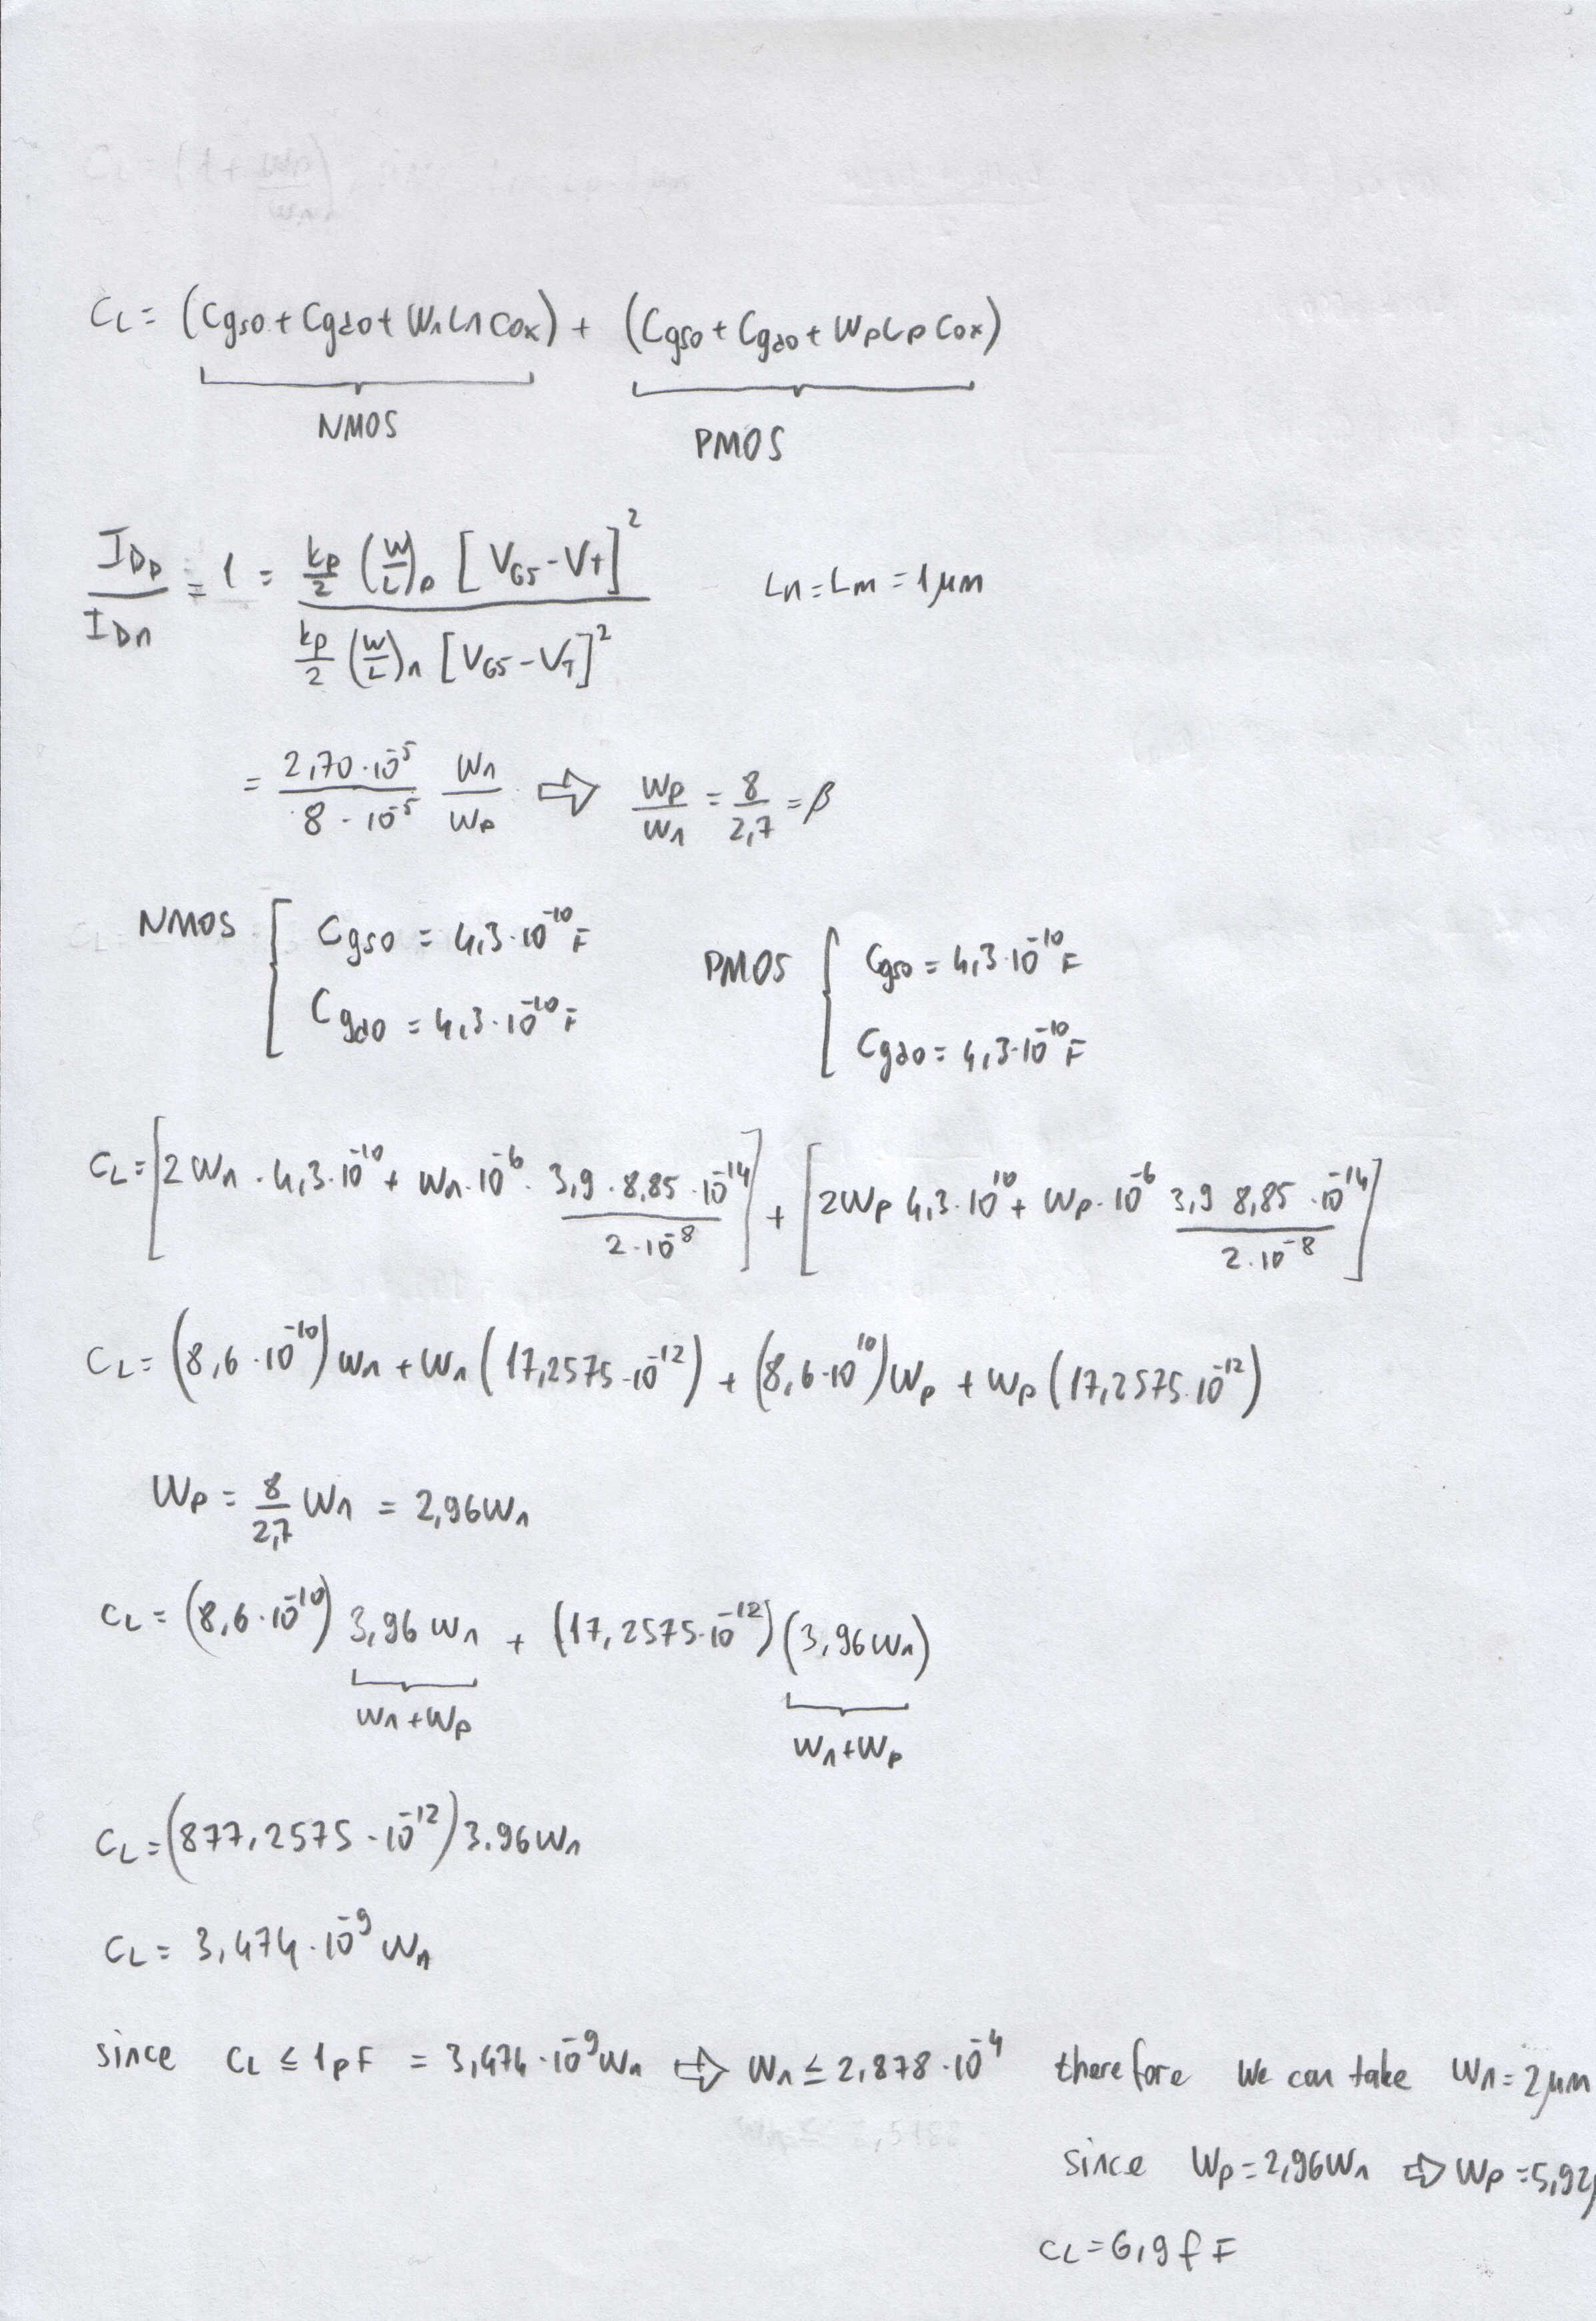 CL = (Cgso + Cgdo + WnLnCox) + (Cgso + Cgdo + WpLpCox)
NMOS PMOS
IDp/IDn = 1 = kp/2 (W/L)p [VGS - VT]² / kp/2 (W/L)n [VGS - VT]² Ln = Lm = 1μm
= 2,70·10⁻⁵ / 8·10⁻⁵ Wn/Wp ⇨ Wp/Wn = 8/2,7 = β
NMOS [ Cgso = 4,3·10⁻¹⁰ F
Cgdo = 4,3·10⁻¹⁰ F
PMOS { Cgso = 4,3·10⁻¹⁰ F
Cgdo = 4,3·10⁻¹⁰ F
CL = [2Wn · 4,3·10⁻¹⁰ + Wn·10⁻⁶ · 3,9 · 8,85 · 10⁻¹⁴ / 2·10⁻⁸] + [2Wp 4,3·10¹⁰ + Wp·10⁻⁶ 3,9 8,85 · 10⁻¹⁴ / 2·10⁻⁸]
CL = (8,6·10⁻¹⁰) Wn + Wn (17,2575·10⁻¹²) + (8,6·10¹⁰) Wp + Wp (17,2575·10⁻¹²)
Wp = 8/2,7 Wn = 2,96Wn
CL = (8,6·10⁻¹⁰) 3,96 Wn + (17,2575·10⁻¹²)(3,96Wn)
Wn + Wp Wn + Wp
CL = (877,2575·10⁻¹²) 3.96Wn
CL = 3,474·10⁻⁹ Wn
since CL ≤ 1pF = 3,474·10⁻⁹ Wn ⇨ Wn ≤ 2,878·10⁻⁴ therefore we can take Wn = 2μm
since Wp = 2,96Wn ⇨ Wp = 5,92
CL = 6,9 fF